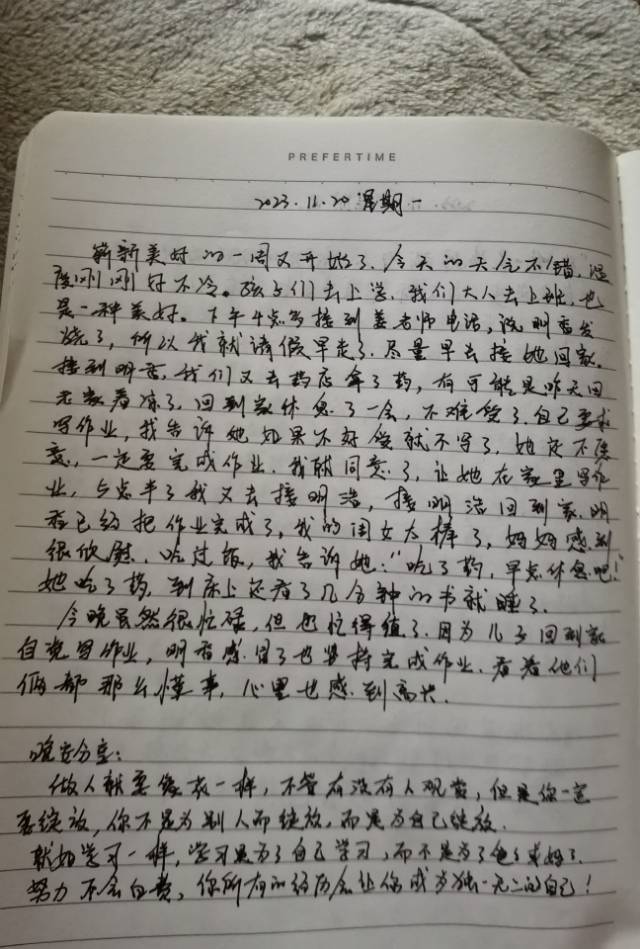 PREFERTIME
2023.11.20 星期一
崭新美好的一周又开始了.今天的天气不错,温
度刚刚好不冷。孩子们去上学,我们大人去上班,也
是一种美好。下午4点多接到姜老师电话,说明香发
烧了,所以我就请假早走了.尽量早去接她回家.
接到明香,我们又去药店拿了药,有可能是昨天回
老家着凉了,回到家休息了一会,不难受了.自己要求
写作业,我告诉她如果不好受就不写了,她还不愿
意,一定要完成作业.我就同意了,让她在家里写作
业,5点半了我又去接明浩,接明浩回到家.明
香已经把作业完成了,我的闺女太棒了,妈妈感到
很欣慰.吃过饭,我告诉她:“吃了药,早点休息吧!”
她吃了药,到床上还看了几分钟的书就睡了.
今晚虽然很忙碌,但也忙得值了.因为儿子回到家
自觉写作业,明香感冒了也坚持完成作业.看着他们
俩都那么懂事,心里也感到高兴.
晚安分享:
做人就要像花一样,不管有没有人观赏,但是你一定
要绽放,你不是为别人而绽放,而是为自己绽放.
就如学习一样,学习是为了自己学习,而不是为了爸爸或妈了.
努力不会白费,你所有的经历会让你成为独一无二的自己!